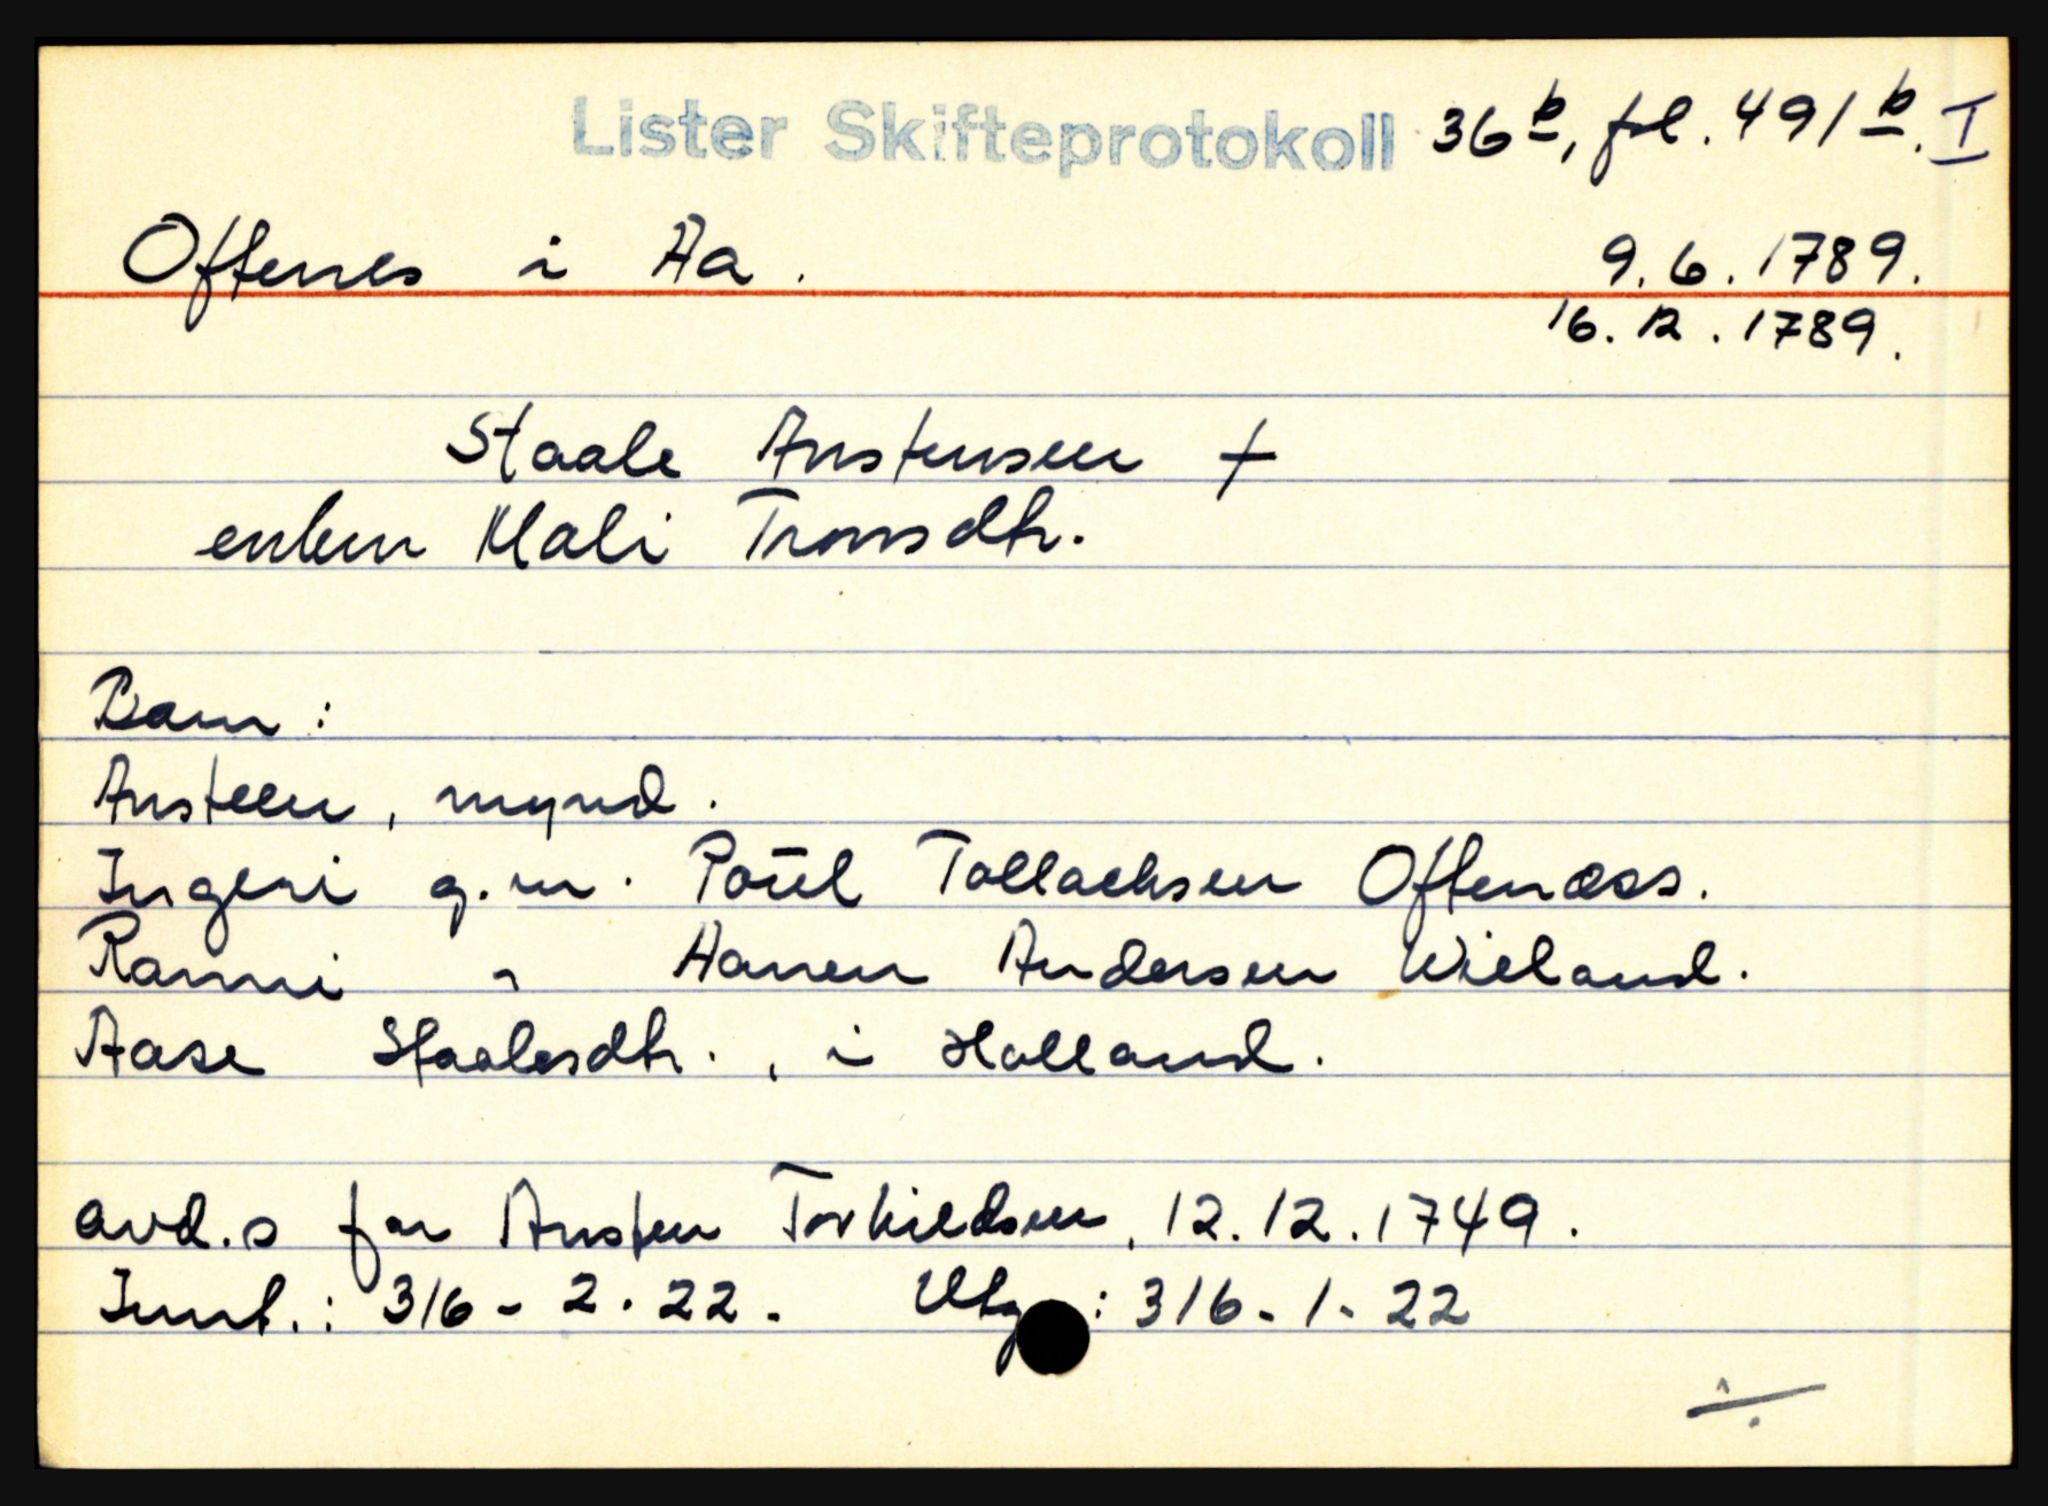 Lister Skifteprotokoll 36 b, fol. 491 b. I
Oftenes i Aa. 9.6.1789.
16.12.1789.
Staale Anstensen +
enken Mali Tronsdtr.
Barn:
Ansteen, mynd.
Ingeri g.m. Poūl Tollachsen Oftenæss.
Ranni " Hanen Andersen Wieland.
Aase Staalesdtr., i Holland.
avd.s far Ansten Torkildsen, 12.12.1749.
Innt.: 316-2-22. Utg.: 316-1-22